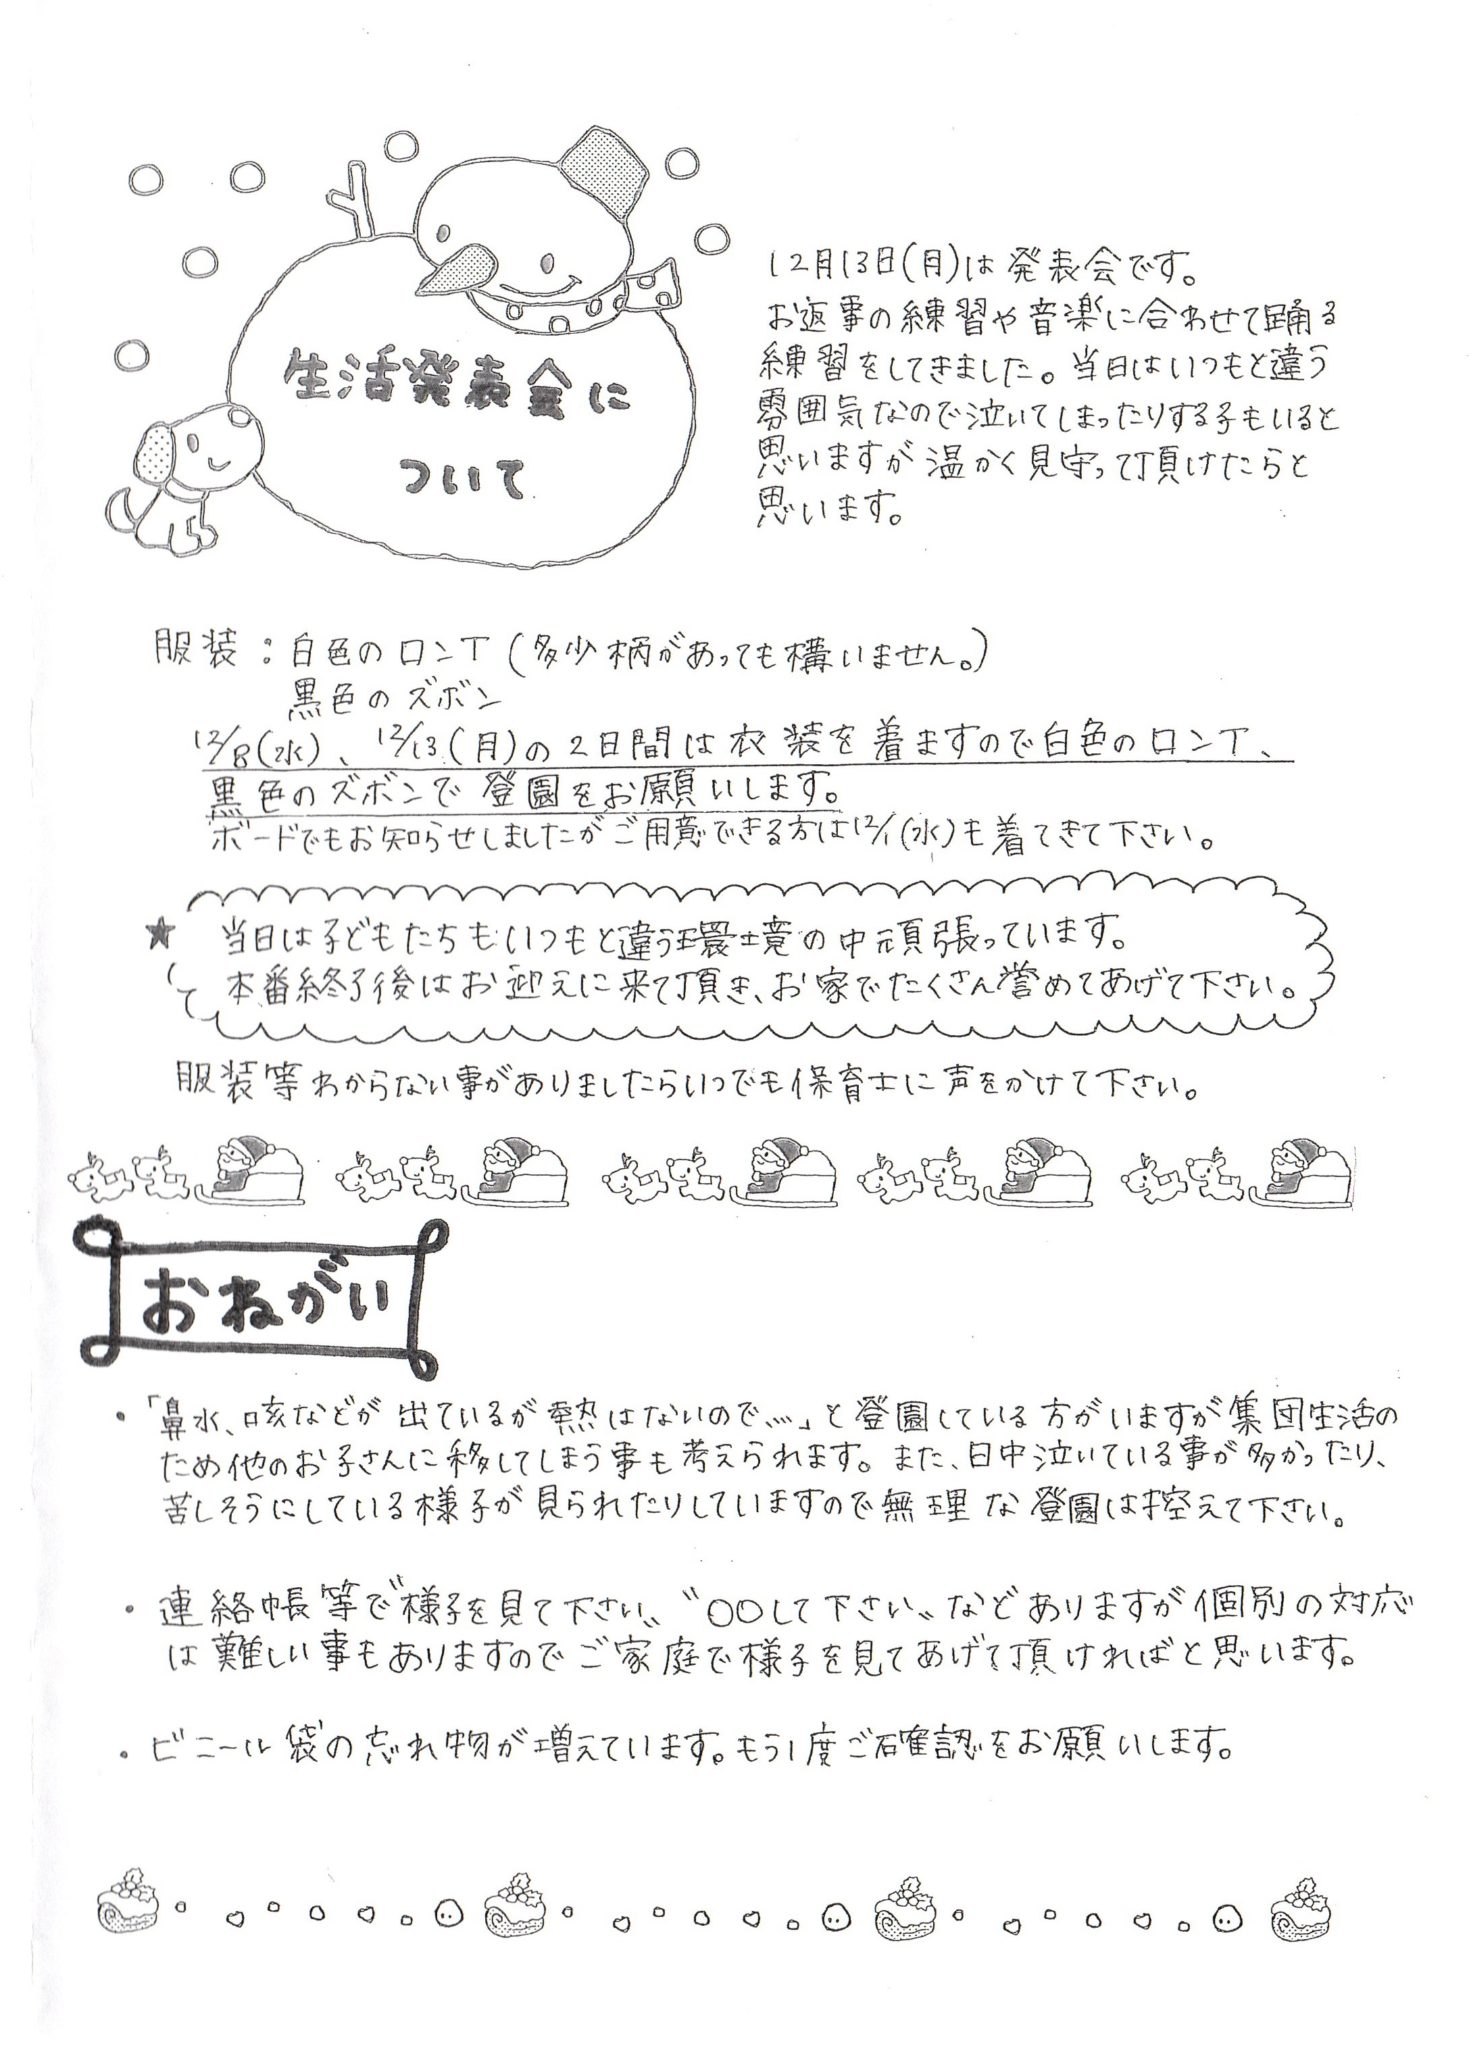 生活発表会に
ついて
12月13日(月)は発表会です。
お返事の練習や音楽に合わせて踊る
練習をしてきました。当日はいつもと違う
雰囲気なので泣いてしまったりする子もいると
思いますが温かく見守って頂けたらと
思います。
服装：白色のロンT(多少柄があっても構いません。)
黒色のズボン
12/8(水)、12/13(月)の2日間は衣装を着ますので白色のロンT、
黒色のズボンで登園をお願いします。
ボードでもお知らせしましたがご用意できる方は12/1(水)も着てきて下さい。
★ 当日は子どもたちもいつもと違う環境の中頑張っています。
本番終了後はお迎えに来て頂き、お家でたくさん誉めてあげて下さい。
服装等わからない事がありましたらいつでも保育士に声をかけて下さい。
おねがい
・「鼻水、咳などが出ているが熱はないので…」と登園している方がいますが集団生活の
ため他のお子さんに移してしまう事も考えられます。また、日中泣いている事が多かったり、
苦しそうにしている様子が見られたりしていますので無理な登園は控えて下さい。
・連絡帳等で〝様子を見て下さい〟〝〇〇して下さい〟などありますが個別の対応
は難しい事もありますのでご家庭で様子を見てあげて頂ければと思います。
・ビニール袋の忘れ物が増えています。もう1度ご確認をお願いします。